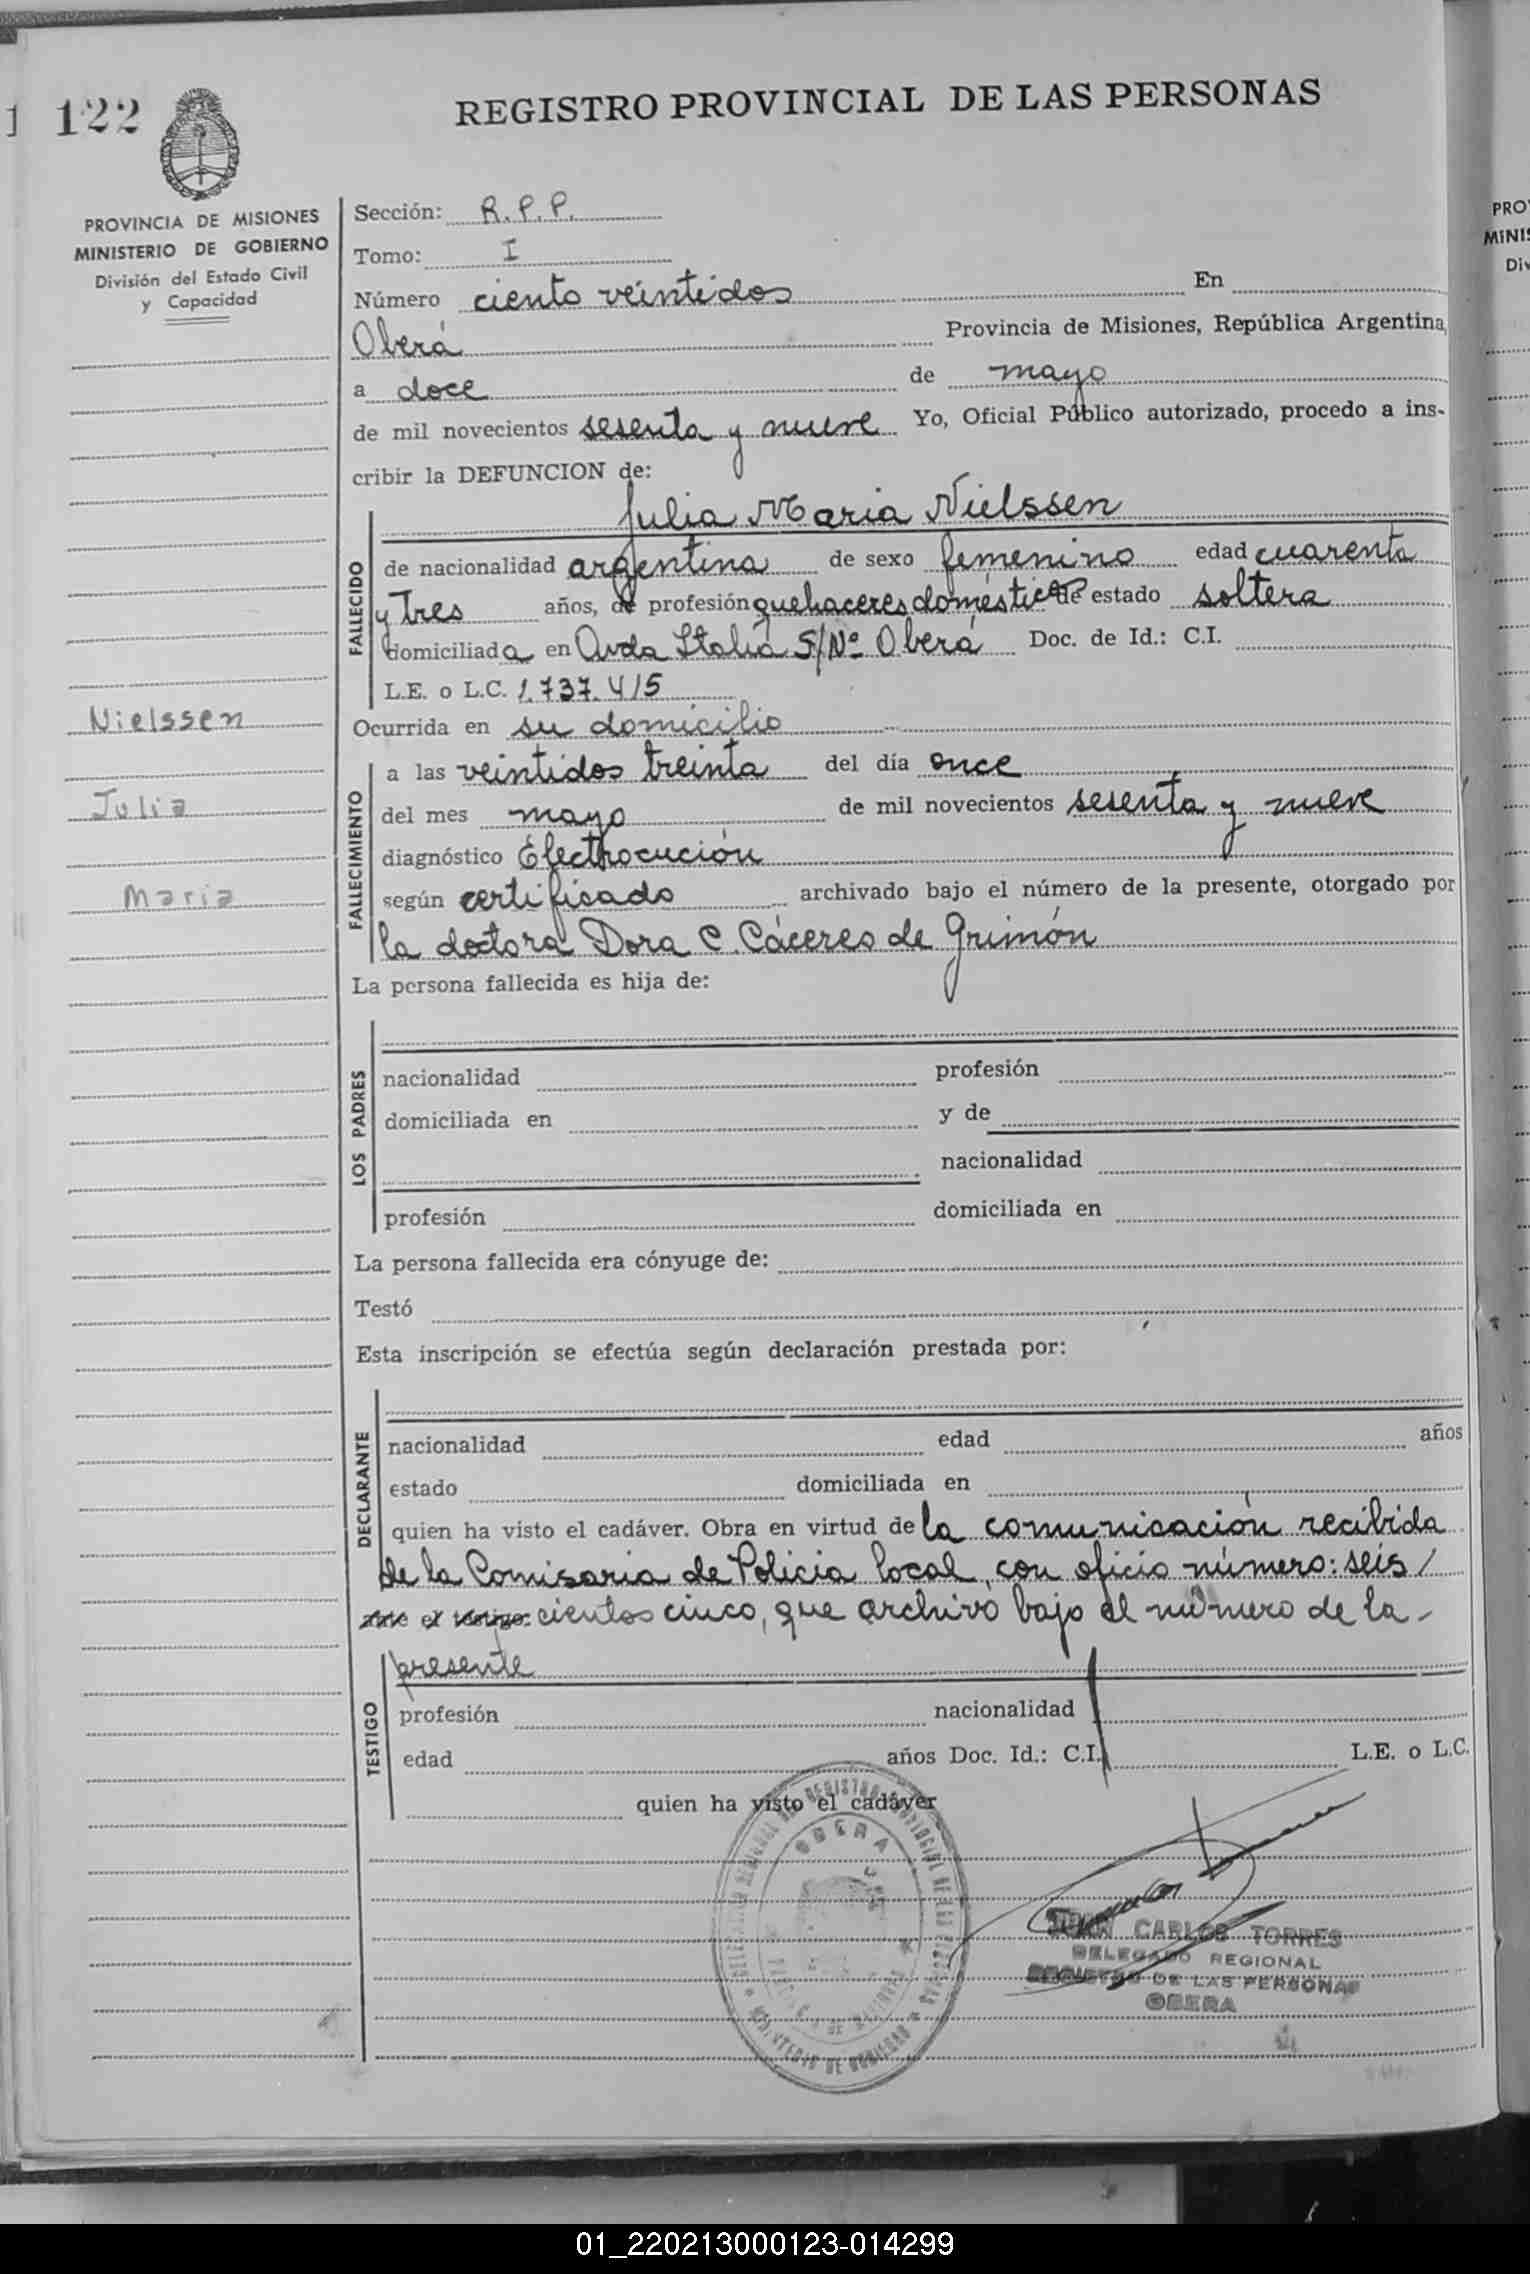 1 122
REGISTRO PROVINCIAL DE LAS PERSONAS
PROVINCIA DE MISIONES
MINISTERIO DE GOBIERNO
División del Estado Civil
y Capacidad
Nielssen
Julia
Maria
Sección: R.P.P.
Tomo: I
Número ciento veintidos En
Oberá Provincia de Misiones, República Argentina,
a doce de mayo
de mil novecientos sesenta y nueve Yo, Oficial Público autorizado, procedo a ins-
cribir la DEFUNCION de:
FALLECIDO
Julia Maria Nielssen
de nacionalidad argentina de sexo femenino edad cuarenta
y tres años, de profesión quehaceres domésticos de estado soltera
domiciliada en Avda Italia S/Nº Oberá Doc. de Id.: C.I.
L.E. o L.C. 1.737.415
Ocurrida en su domicilio
FALLECIMIENTO
a las veintidos treinta del día once
del mes mayo de mil novecientos sesenta y nueve
diagnóstico Electrocución
según certificado archivado bajo el número de la presente, otorgado por
la doctora Dora C. Cáceres de Grimón
La persona fallecida es hija de:
LOS PADRES
nacionalidad profesión
domiciliada en y de
nacionalidad
profesión domiciliada en
La persona fallecida era cónyuge de:
Testó
Esta inscripción se efectúa según declaración prestada por:
DECLARANTE
nacionalidad edad años
estado domiciliada en
quien ha visto el cadáver. Obra en virtud de la comunicación recibida
de la Comisaria de Policia local, con oficio número: seis/
cientos cinco, que archivo bajo el número de la-
TESTIGO
presente
profesión nacionalidad
edad años Doc. Id.: C.I. L.E. o L.C.
quien ha visto el cadáver
OBERA
JUAN CARLOS TORRES
DELEGADO REGIONAL
REGISTRO DE LAS PERSONAS
OBERA
PRO
MINIS
Div
01_220213000123-014299